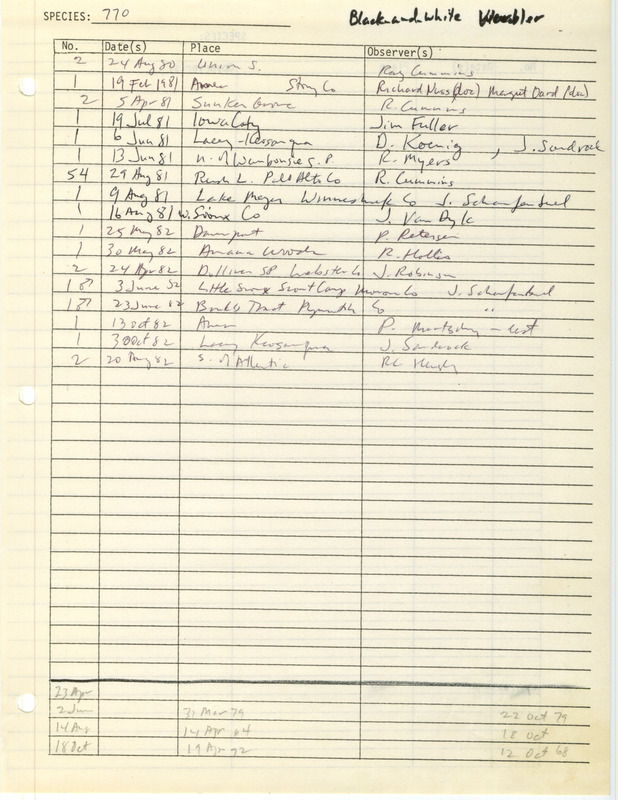 SPECIES: 770 Black-and-white Warbler
No. Date(s) Place Observer(s)
2 24 Aug 80 Union S. Ray Cummins
1 19 Feb 1981 Ames Story Co Richard (doc) Margaret Dard (doc)
2 5 Apr 81 Sunken Grove R. Cummins
1 19 Jul 81 Iowa City Jim Fuller
1 6 Jun 81 Lacey-Keosauqua D. Koenig, J. Sandrock
1 13 Jun 81 n. of Waubonsie S.P. R. Myers
54 29 Aug 81 Rush L. Palo Alto Co R. Cummins
1 9 Aug 81 Lake Meyer Winneshiek Co J. Schaufenbuel
1 16 Aug 81 w. Sioux Co J. Van Dyk
1 25 May 82 Davenport P. Petersen
1 30 May 82 Amana Woods R. Hollis
2 24 Apr 82 Dolliver SP Webster Co J. Robinson
1♂ 3 June 82 Little Sioux Scout Camp Monona Co J. Schaufenbuel
1♂ 23 June 82 Tract Plymouth Co "
1 13 Oct 82 Ames P. - last
1 3 Oct 82 Lacey Keosauqua J. Sandrock
2 20 Aug 82 S. of Atlantic
23 Apr
2 Jun 31 Mar 79 22 Oct 79
14 Aug 14 Apr 64 18 Oct
18 Oct 19 Apr 72 12 Oct 68